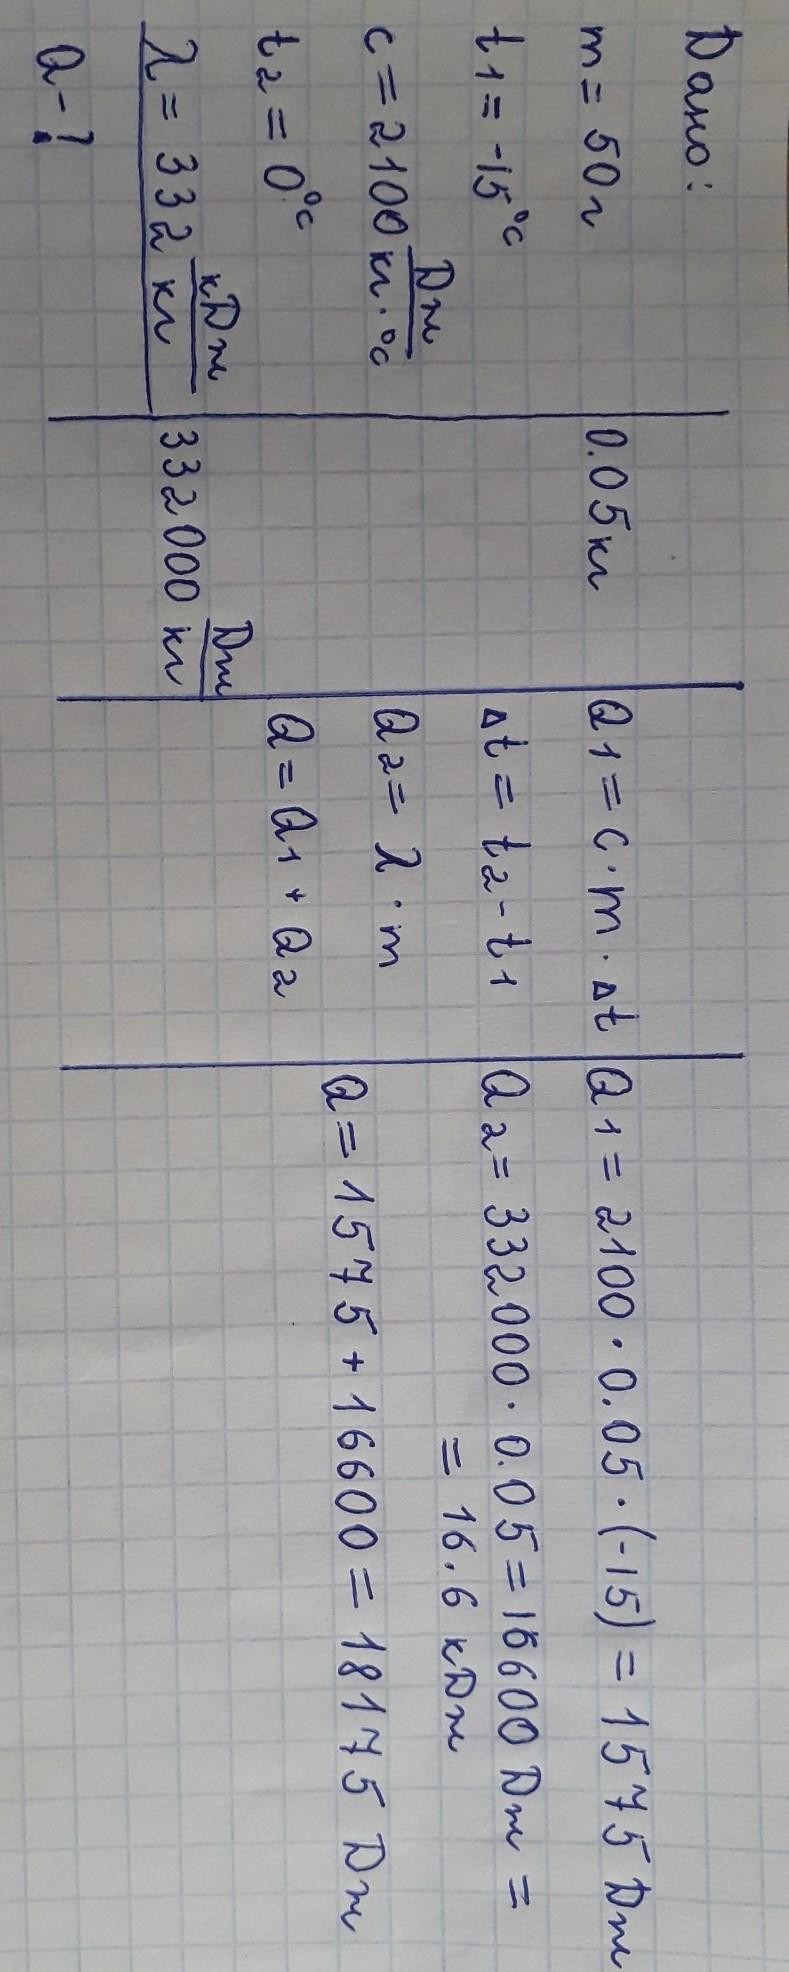 Дано:
m = 50 г
t1 = -15°C
c = 2100 Дж/кг·°C
t2 = 0°C
λ = 332 кДж/кг
Q - ?
0.05 кг
332000 Дж/кг
Q1 = c · m · Δt
Δt = t2 - t1
Q2 = λ · m
Q = Q1 + Q2
Q1 = 2100 · 0.05 · (-15) = 1575 Дж
Q2 = 332000 · 0.05 = 16600 Дж =
= 16.6 кДж
Q = 1575 + 16600 = 18175 Дж